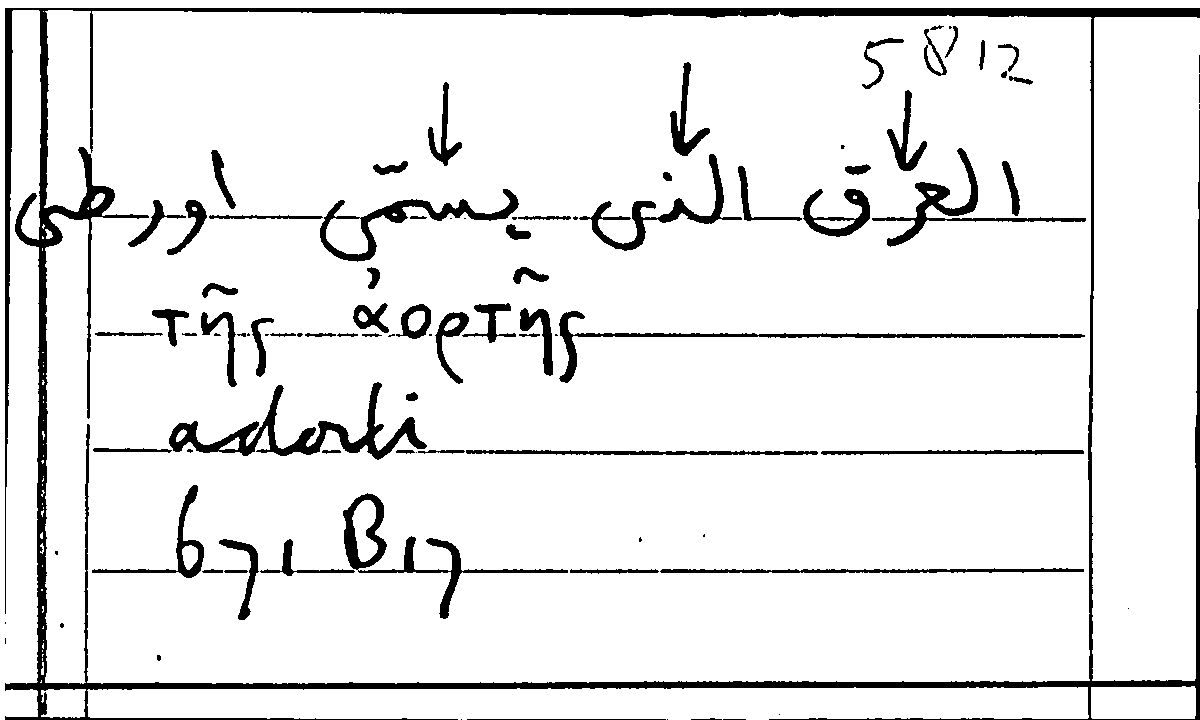 58 12
العرق الذى يسمّى اورطى
τῆς ἀορτῆς
adorti
671 B 17